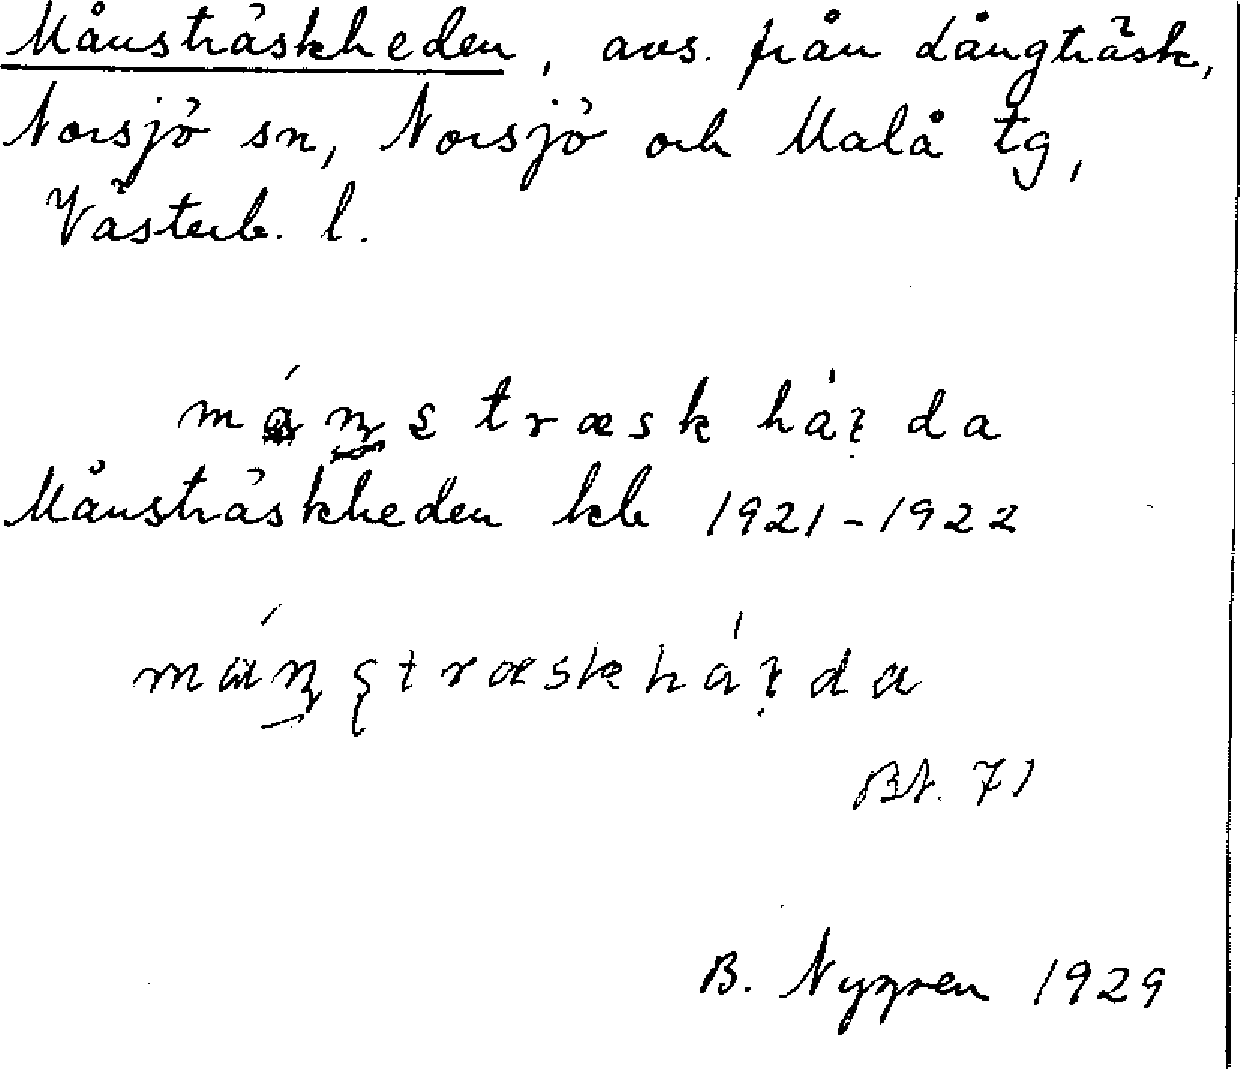 Månsträskheden, avs. från Långträsk,
Norsjö sn, Norsjö och Malå tg,
Västerb. l.
mánstræsk há̀ɪda
Månsträskheden kb 1921-1922
mánstræskháɪda
Bt. 71
B. Nygren 1929